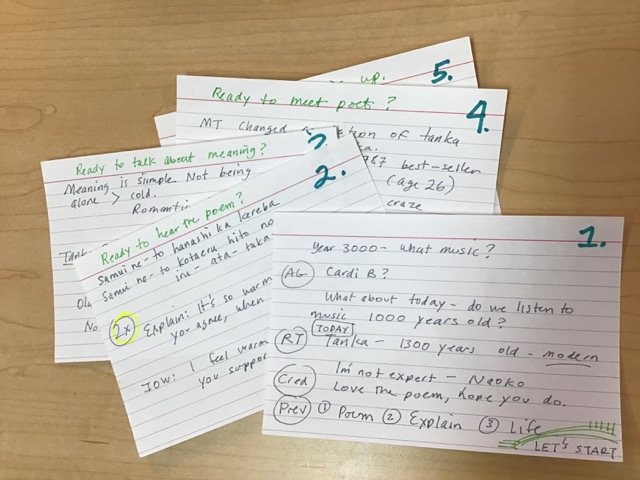 up. 5.
Ready to meet poet? 4.
MT changed
tion of tanka
ka.
787 best-seller
(age 26)
craze
Ready to talk about meaning?
Meaning is simple. Not being
alone > cold.
Romanti
2.
Ready to hear the poem?
Samui ne-to hanashi ka kareba
Samui ne-to kotaeru hito no
iru-ata-taka
2x Explain: It's so warm
you agree, when
IOW: I feel warm
you suppo
1.
Year 3000 - what music?
AG Cardi B?
What about today - do we listen to
music 1000 years old?
TODAY
RT Tanka - 1300 years old - modern
Cred I'm not expert - Naoko
Love the poem, hope you do.
Prev ① Poem ② Explain ③ Life
LET'S START